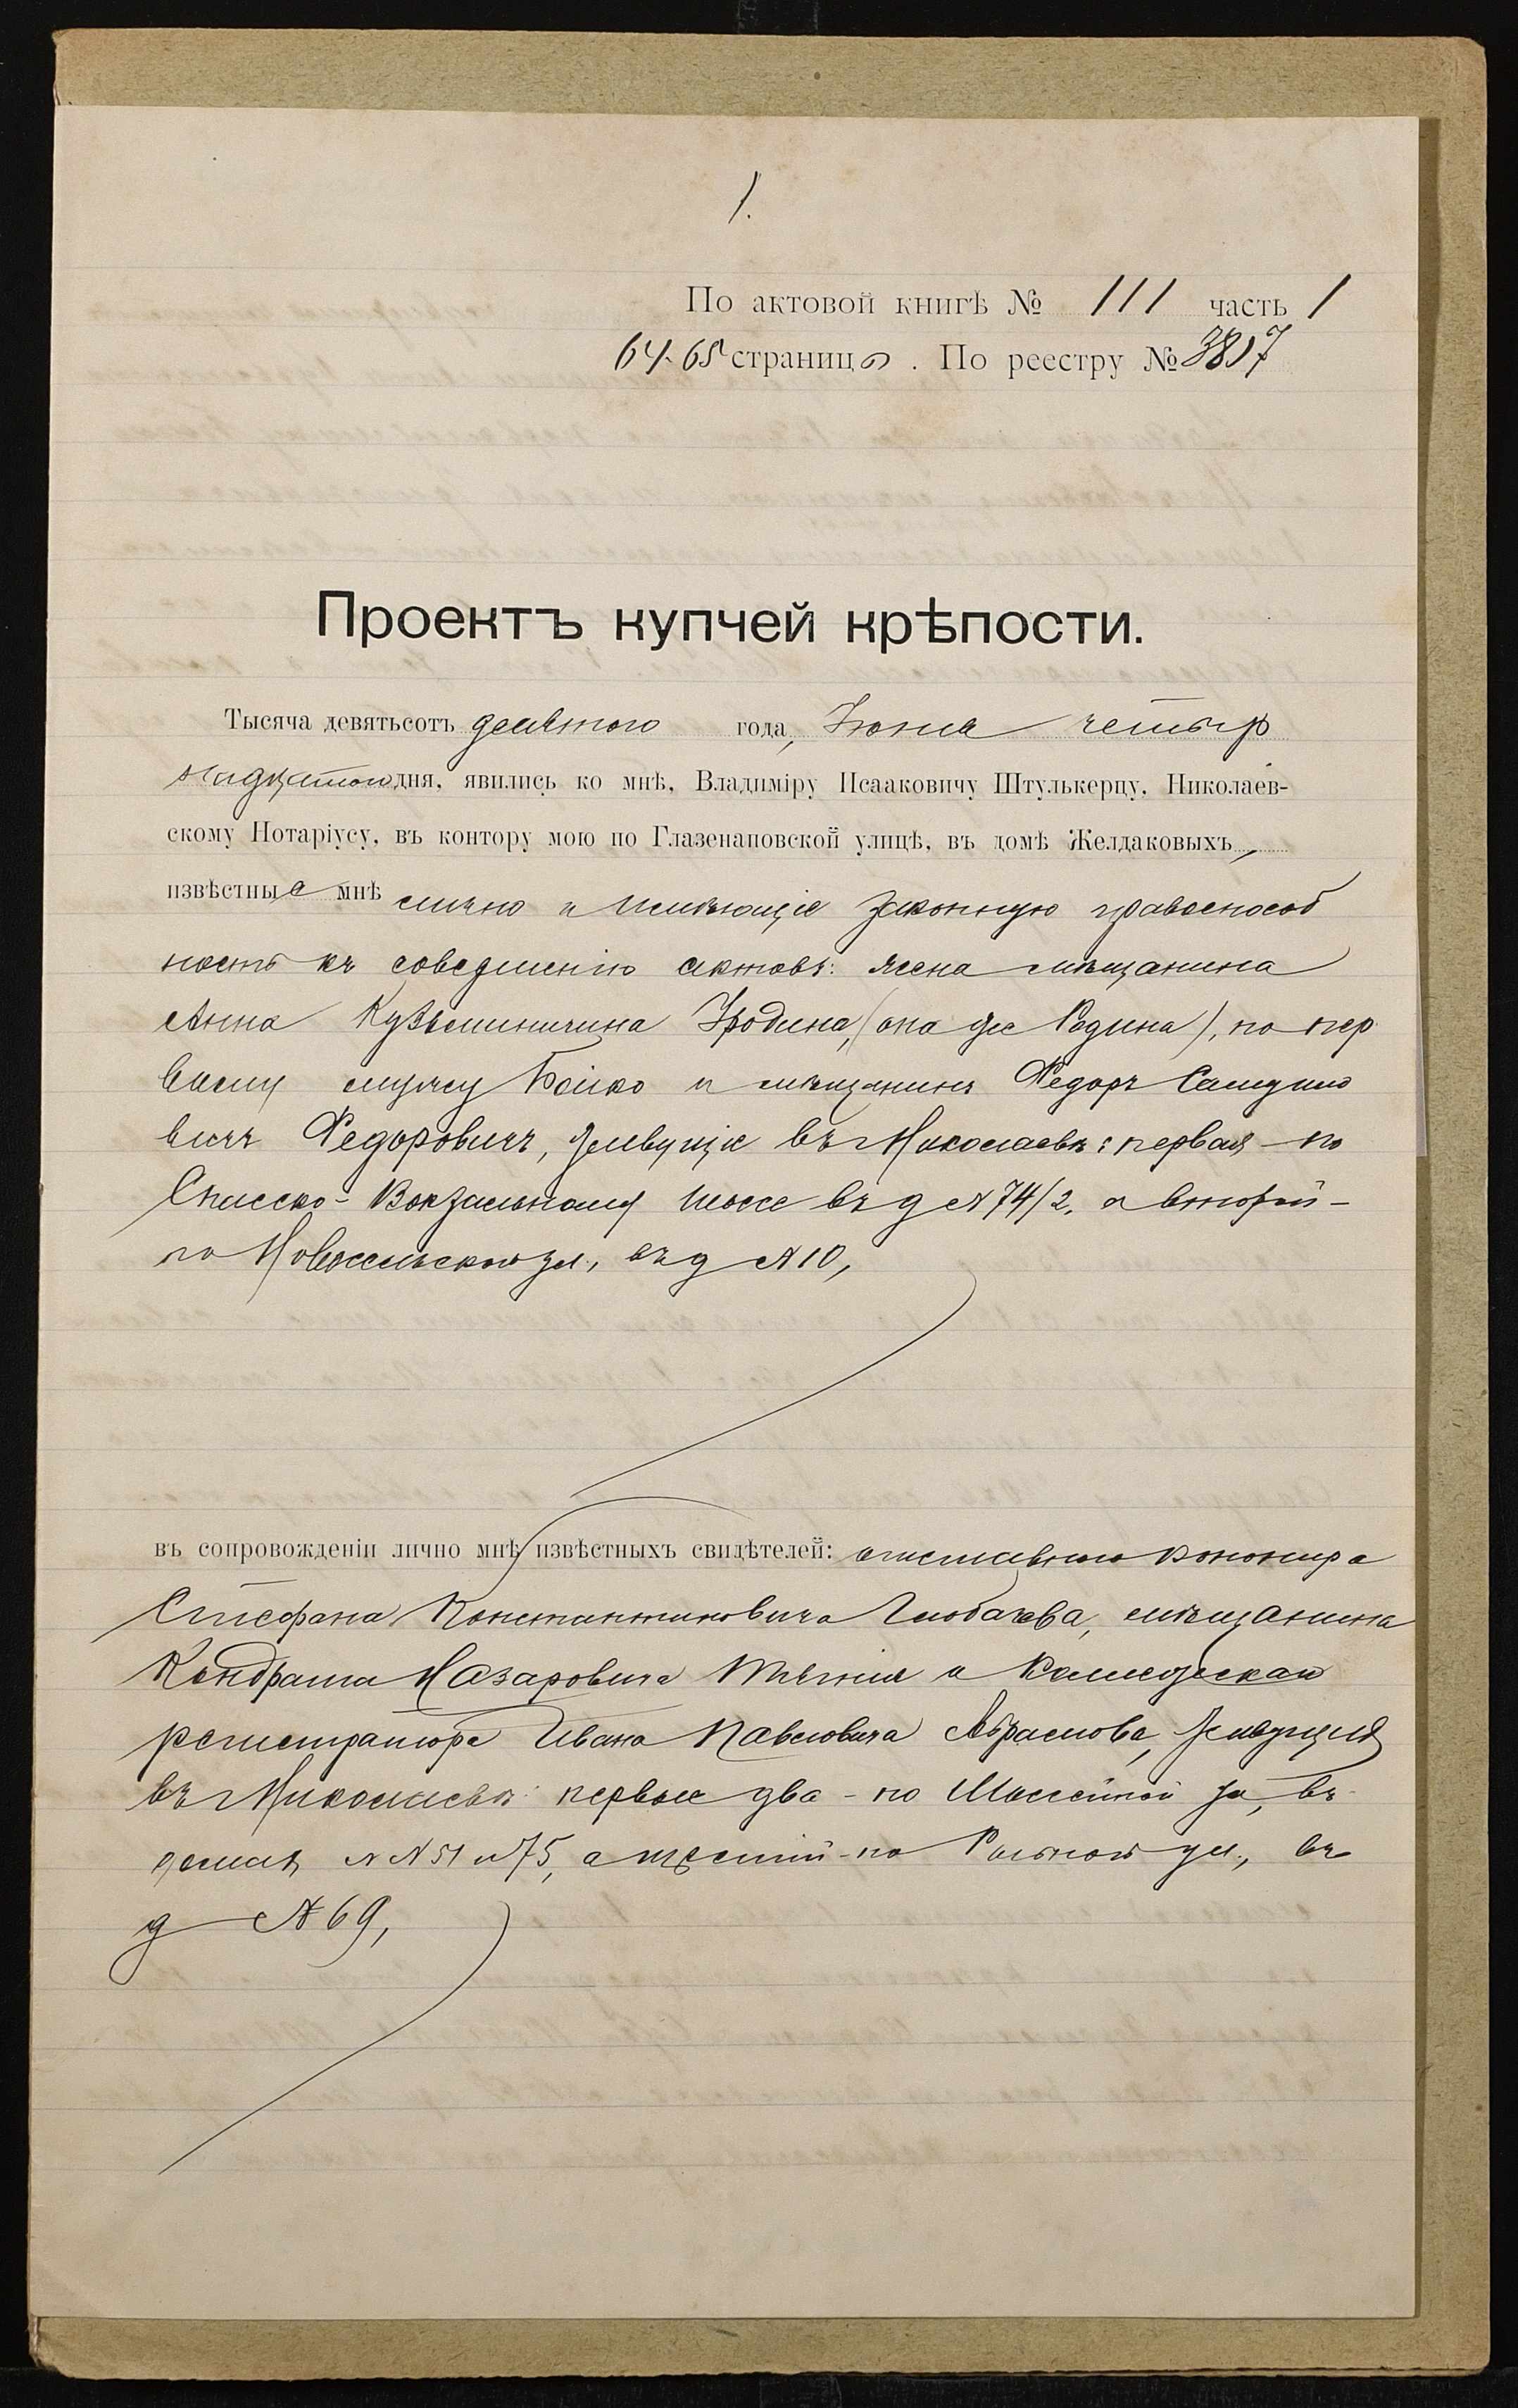 1.
По актовой книгѣ № 111 часть 1
64-65 страница. По реестру № 3817
Проектъ купчей крѣпости.
Тысяча девятьсотъ года, Іюня четыр
надцатого дня, явились ко мнѣ, Владиміру Исааковичу Штулькерцу, Николаев-
скому Нотаріусу, въ контору мою по Глазенаповской улицѣ, въ домѣ Желдаковыхъ,
извѣстные мнѣ лично и имѣющіе законную правоспособ
ность къ совершенію актовъ: жена мѣщанина
Анна Кузьминична (она же Родина), по пер
вому мужу Бойко и мѣщанинъ Федоръ Самуило
вичъ Федоровичъ, живущіе въ Николаевѣ: первая – по
Спасско-Вокзальному шоссе въ д №74/2, а второй –
по Новосельской ул., въ д №10,
въ сопровожденіи лично мнѣ извѣстныхъ свидѣтелей: отставного
Стефана Константиновича мѣщанина
Кондрата Назаровича и Коллежскаго
регистратора Ивана Павловича Абрамова, живущихъ
въ Николаевѣ: первые два – по Шоссейной ул, въ
домахъ №№51 и 75, а третій – по ул., въ
д №69,